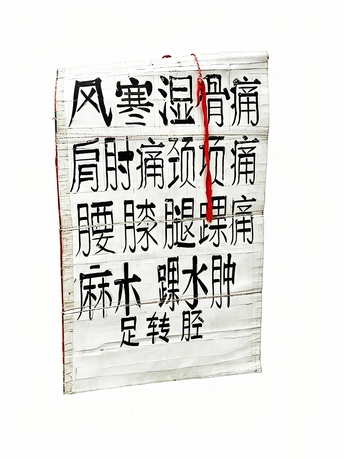 风寒湿骨痛
肩肘痛颈项痛
腰膝腿踝痛
麻木 踝水肿
足转胫